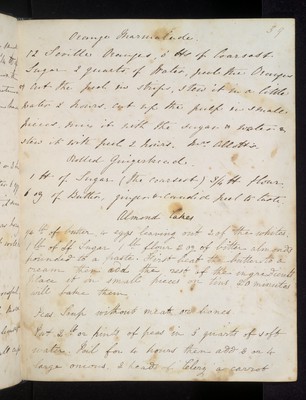 39
Orange Marmalade.
12 Seville Oranges, 3 lbs of Coarsest
Sugar 2 quarts of Water, peel the Oranges
cut the peel in strips, stew it in a little
water 2 hours. cut up the pulp in small
pieces, mix it with the sugar & water &
stew it with peel 2 hours. Mrs
Rolled Gingerbread.
1 lb of Sugar (the coarsest) 3/4 lb flour
6 oz of Butter, ginger & candied peel to taste
Almond Cakes
lb of butter 4 eggs leaving out 2 of the whites
lb of Sugar 1 lb flour 2 oz of bitter almonds
pounded to a paste. First beat the butter to a
cream then add the rest of the ingredients
Place it in small pieces on tins 20 minutes
will bake them
Peas Soup without meat or bones.
Put 2 pints of peas in 3 quarts of soft
water. Boil for 4 hours then add 3 or 4
large onions, 2 heads of Celery a carrot